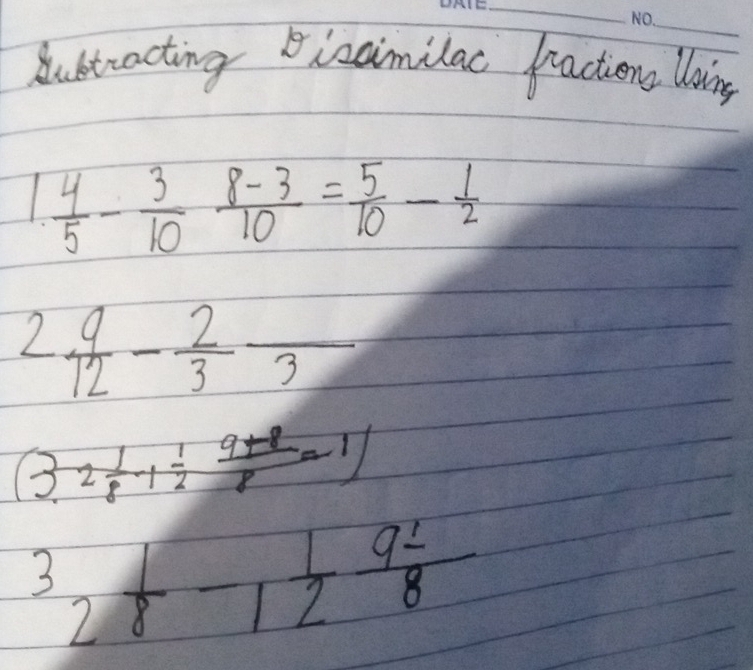 DATE NO.
Subtracting Dissimilac fractions Using
1. 4/5 - 3/10 8-3/10 = 5/10 - 1/2
2 9/12 - 2/3 /3
(3. 2 1/8 + 1/2 9+8/8 = 1)
3 2 1/8 - 1 1/2 9 1/8